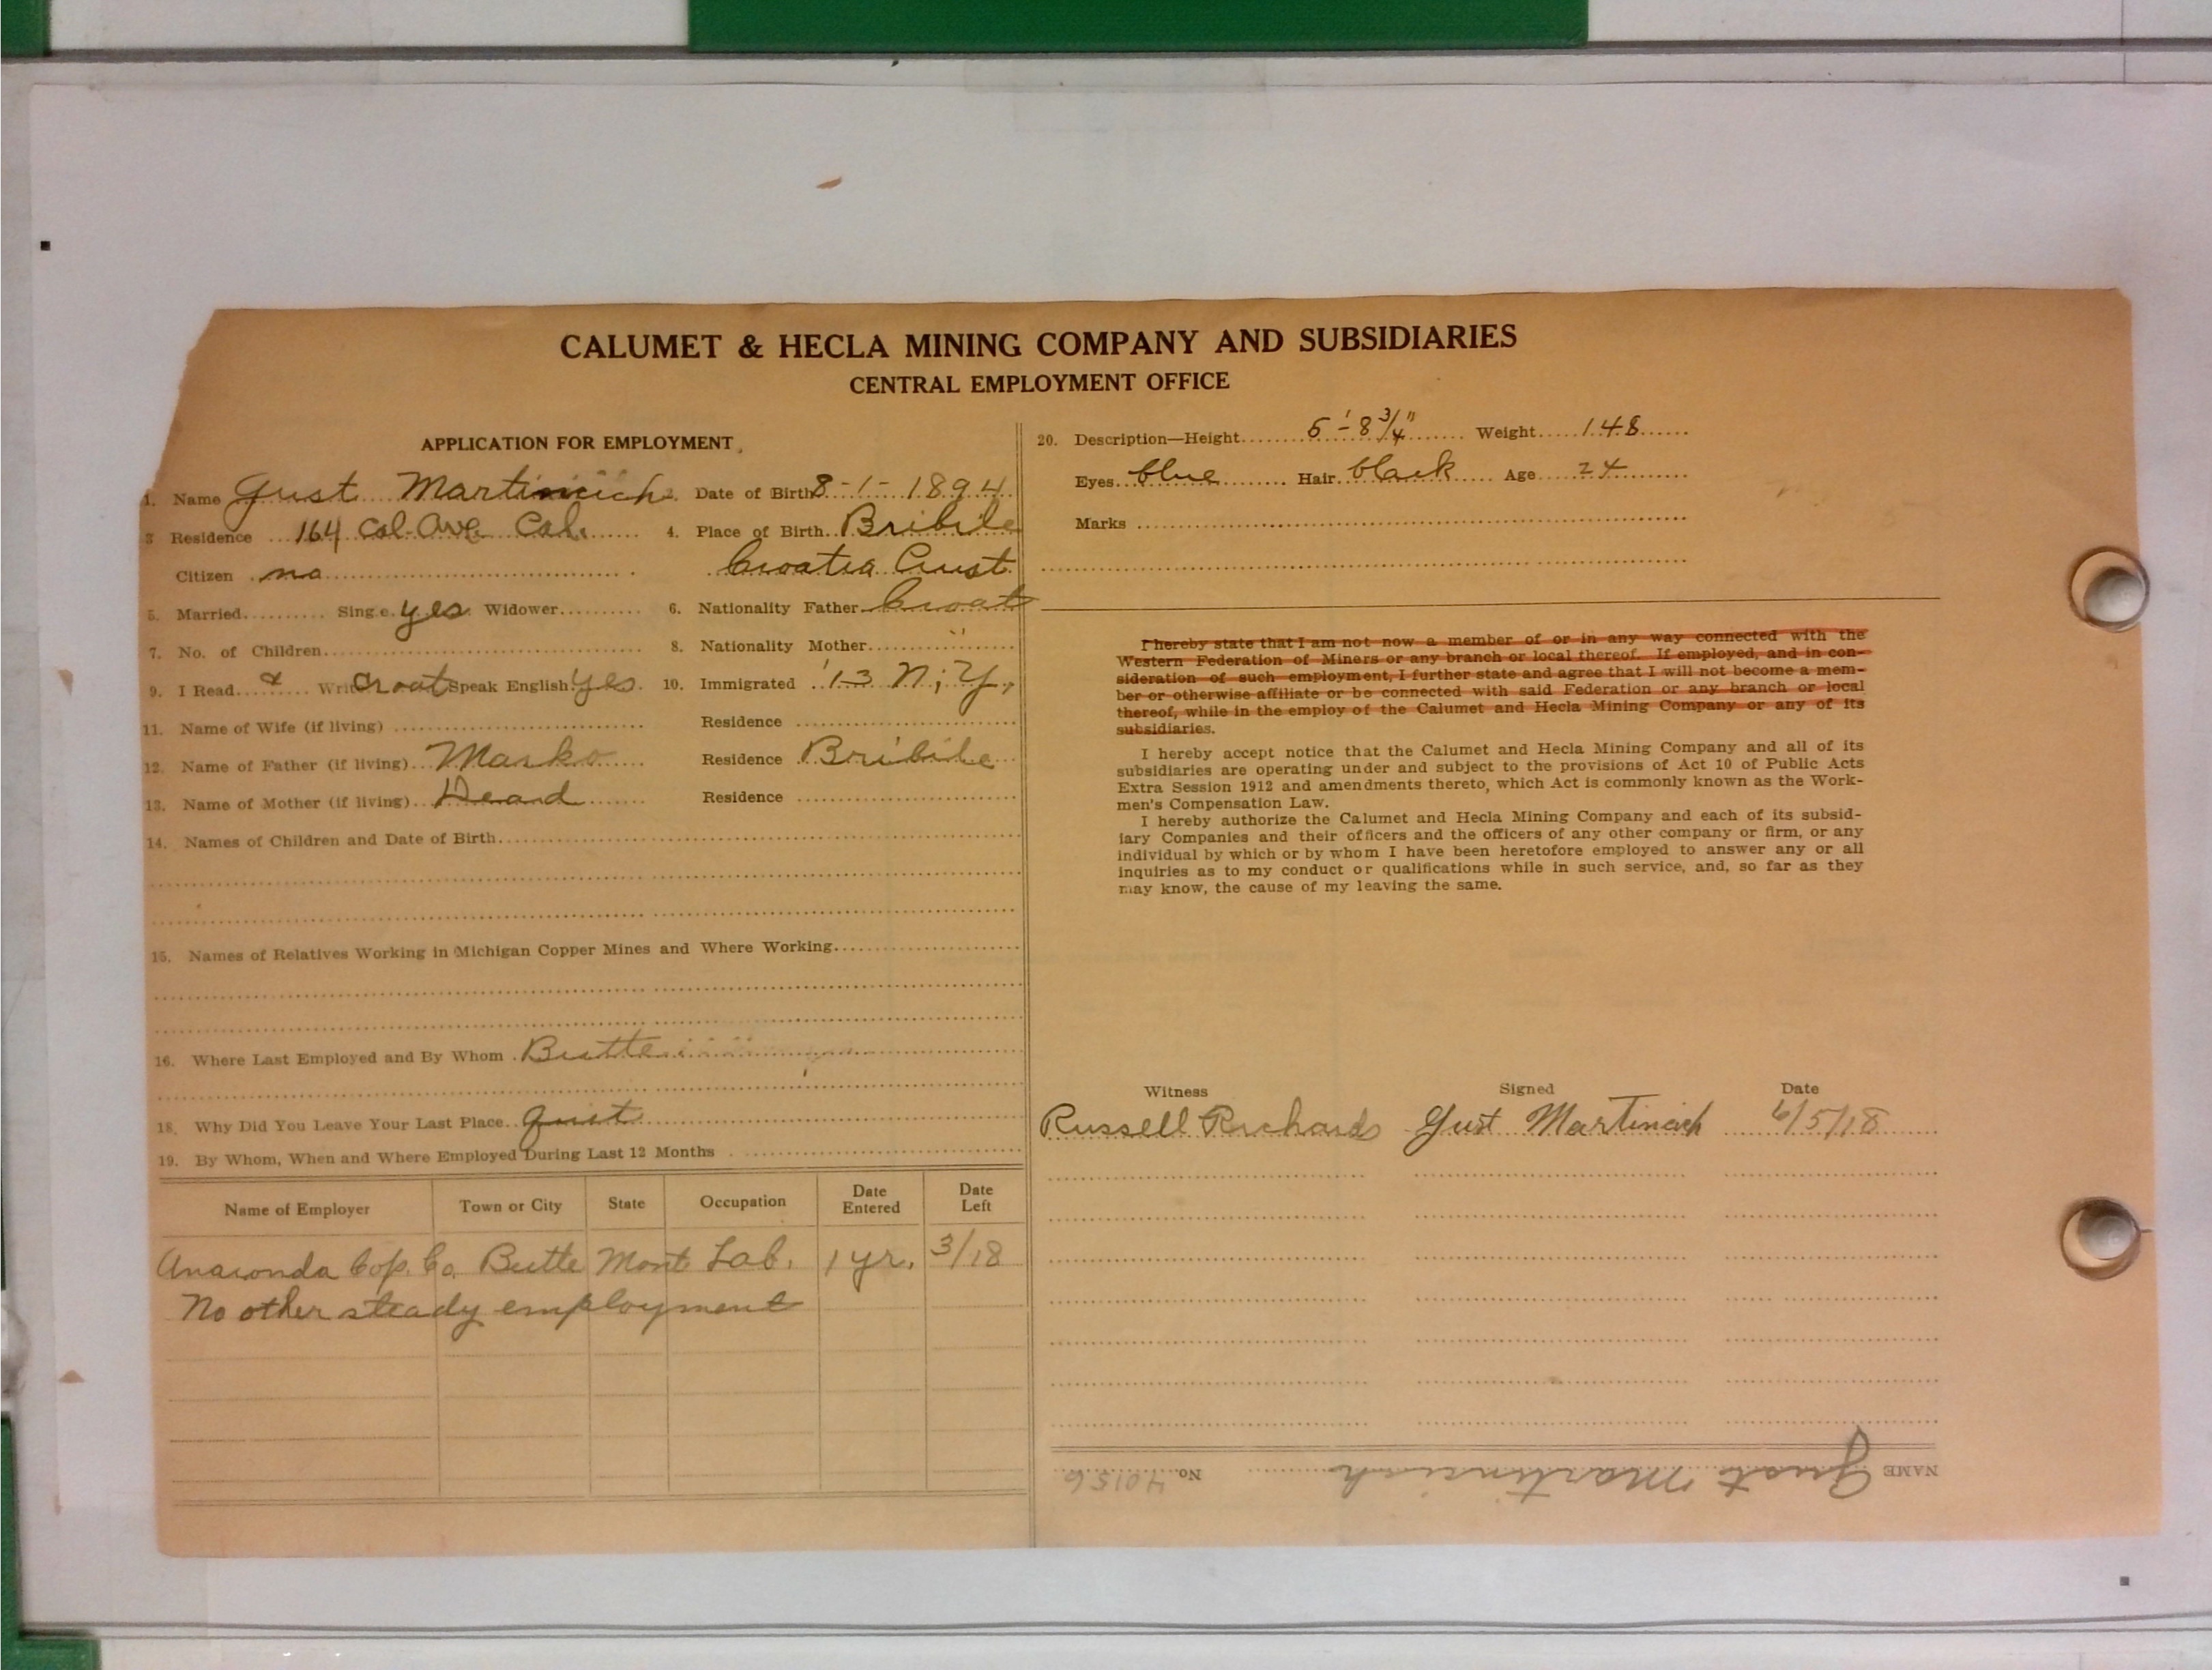 CALUMET & HECLA MINING COMPANY AND SUBSIDIARIES
CENTRAL EMPLOYMENT OFFICE
APPLICATION FOR EMPLOYMENT
1. Name Gust Martincich 2. Date of Birth 8-1-1894
3 Residence 164 Cal. Ave. Cal. 4. Place of Birth Bribile
Citizen no Croatia Aust.
5. Married Single yes Widower 6. Nationality Father Croat
7. No. of Children 8. Nationality Mother "
9. I Read & Write Croat Speak English yes 10. Immigrated '13 N.Y.
11. Name of Wife (if living) Residence
12. Name of Father (if living) Marko Residence Bribile
13. Name of Mother (if living) Dead Residence
14. Names of Children and Date of Birth
15. Names of Relatives Working in Michigan Copper Mines and Where Working
16. Where Last Employed and By Whom Butte
18. Why Did You Leave Your Last Place quit
19. By Whom, When and Where Employed During Last 12 Months
Name of Employer Town or City State Occupation Date Entered Date Left
Anaconda Cop. Co. Butte Mont Lab. 1 yr. 3/18
No other steady employment
20. Description—Height 5'-8 3/4" Weight 148
Eyes blue Hair black Age 24
Marks
I hereby state that I am not now a member of or in any way connected with the
Western Federation of Miners or any branch or local thereof. If employed, and in con-
sideration of such employment, I further state and agree that I will not become a mem-
ber or otherwise affiliate or be connected with said Federation or any branch or local
thereof, while in the employ of the Calumet and Hecla Mining Company or any of its
subsidiaries.
I hereby accept notice that the Calumet and Hecla Mining Company and all of its
subsidiaries are operating under and subject to the provisions of Act 10 of Public Acts
Extra Session 1912 and amendments thereto, which Act is commonly known as the Work-
men's Compensation Law.
I hereby authorize the Calumet and Hecla Mining Company and each of its subsid-
iary Companies and their officers and the officers of any other company or firm, or any
individual by which or by whom I have been heretofore employed to answer any or all
inquiries as to my conduct or qualifications while in such service, and, so far as they
may know, the cause of my leaving the same.
Witness Signed Date
Russell Richards Gust Martincich 6/5/18
NAME Gust Martincich No. 40156